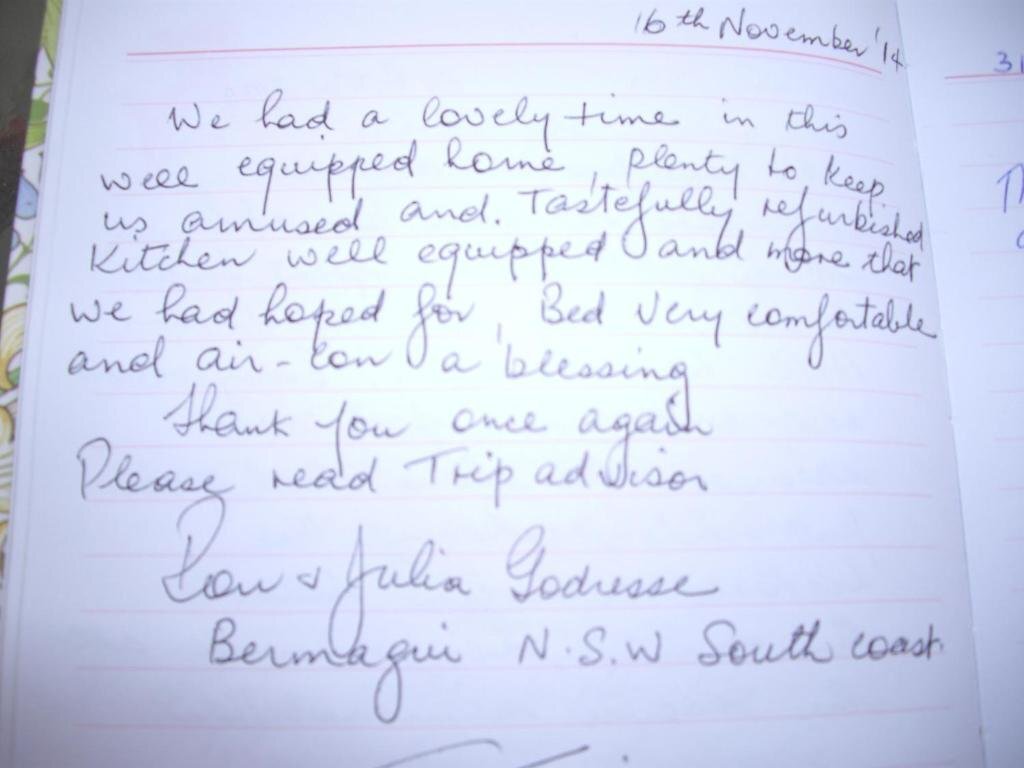 16th November '14
We had a lovely time in this
well equipped home, plenty to keep
us amused and. Tastefully refurbished
Kitchen well equipped and more that
we had hoped for, Bed very comfortable
and air-con a blessing
Thank you once again
Please read Trip advisor
Ron & Julia Godresse
Bermagui N.S.W South coast.
31
Th